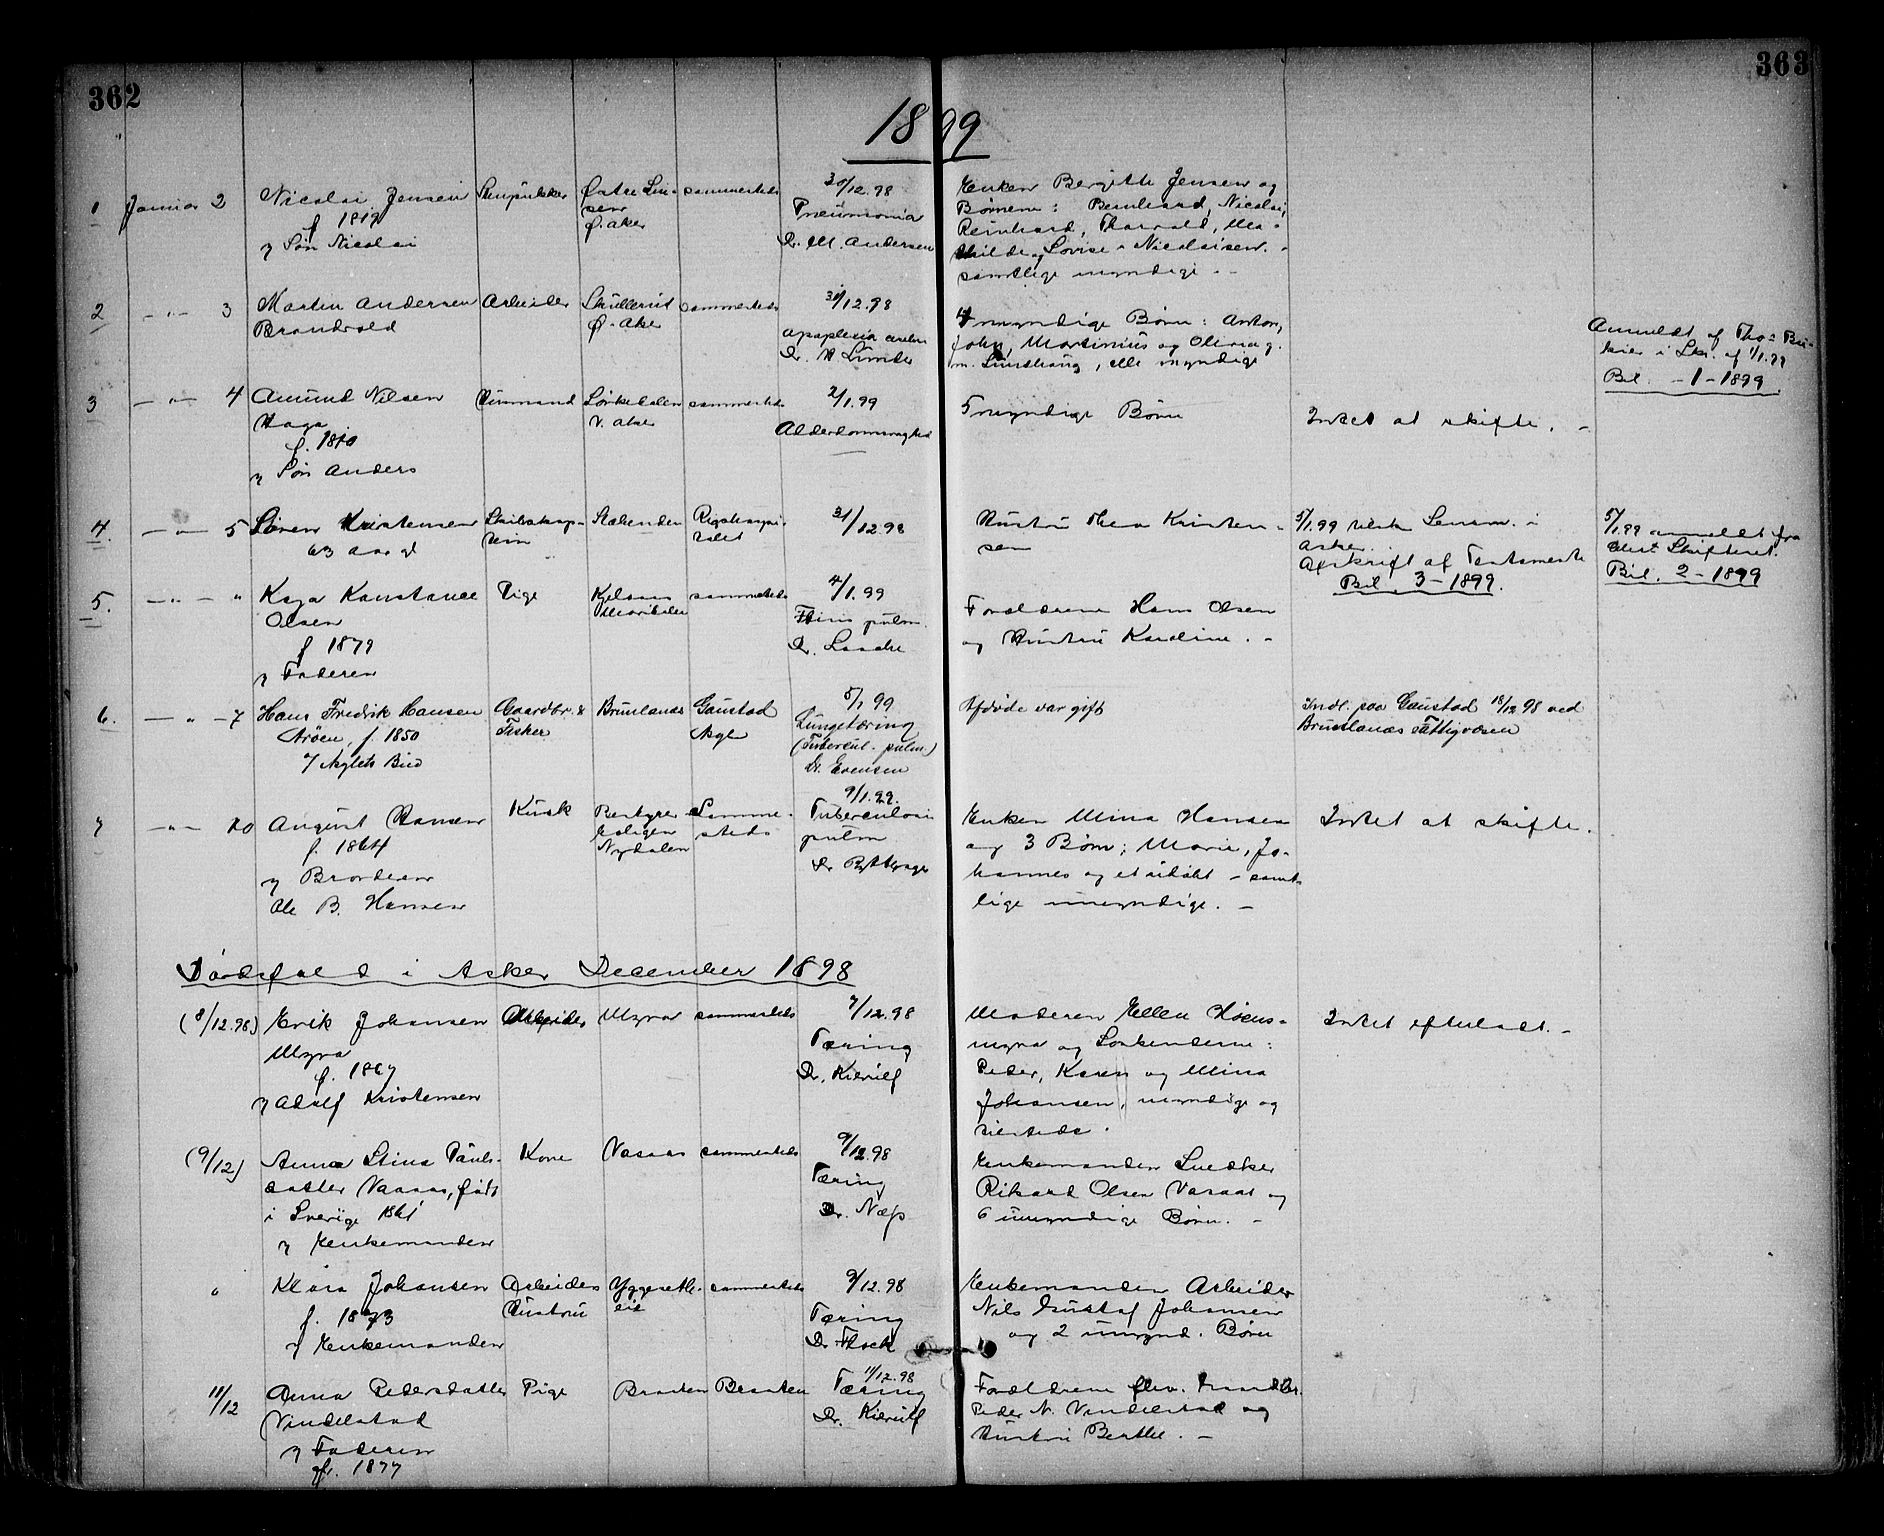 362
363
1899
1 Januar 2 Nicolai Jensen
f 1819
v Søn Nicolai
Østre
Ø. Aker
sammesteds
30/12.98
Pneumonia
Dr. M. Andersen
Enken Bergitte Jensen og
Børnene: Bernhard, Nicolai,
Reinhard, Thorvald, Ma-
thilde og Lovise - Nicolaisen. -
samtlige myndige. -
2 - " - 3 Martin Andersen
Brandvold
Arbeider
Skullerud
Ø. Aker
sammesteds
31/12.98
apoplexia
Dr.
4 myndige Børn: Anton,
John, Martinius og g.
m. , alle myndige
Anmeldt af
i Skr. af 1/1.99
Bil. - 1 - 1899.
3 - " - 4 Amund Nilsen
Haga
f. 1810
v Søn Anders
Huusmand
Sørkedalen
V. Aker
sammesteds
2/1.99
Alderdomssvaghed
5 myndige Børn
Intet at skifte. -
4. - " - 5 Søren Kristensen
63 Aar gl
Stabekken
Rigshospi-
talet
31/12.98
Hustru Thea Kristen-
sen
5/1.99 Lensm. i
Asker.
Afskrift af Testamente
Bil. 3 - 1899.
5/1.99 anmeldt fra
Skifteret.
Bil. 2 - 1899
5. - " - " Kaja Konstance
Olsen
f 1879
v Faderen
Pige
Kjelsaas
Maridalen
sammesteds
4/1.99
Ftisis pulm.
Dr. Laache
Forældrene Hans Olsen
og Hustru Karoline. -
6. - " - 7 Hans Fredrik Hansen
Arøen, f. 1850
v Asylets Bud
Gaardbr. &
Fisker
Brunlanæs
Gaustad
Asyl
5/1 99
Lungetæring
(Tubercul. pulm.)
Dr. Evensen
Afdøde var gift
Indl. paa Gaustad 18/12 98 ved
Brunlanæs Fattigvæsen
7 - " - 10 August Hansen
f. 1864
v Broderen
Ole B. Hansen
Kusk
Bestyrer
boligen
Nydalen
Samme-
steds
9/1.99.
Tuberculosis
pulm
Dr
Enken Mina Hansen
og 3 Børn; Marie, Jo-
hannes og et udøbt - samt-
lige umyndige. -
Intet at skifte.
Dødsfald i Asker December 1898
(8/12.98) Erik Johansen
Myra
f. 1867
v Adolf Kristensen
Arbeider
Myra
sammesteds
7/12.98
Tæring
Dr. Kierulf
Moderen Ellen Høens-
myra og Søskenderne:
Peder, Karen og Mina
Johansen, myndige og
tilstede.
Intet efterladt. -
(9/12) Anna Stina Pauls-
datter Vasaas, født
i Sverige 1861
v Enkemanden
Kone
Vasaas
sammesteds
9/12.98
Tæring
Dr. Næss
Enkemanden Snedker
Rikard Olsen Vasaas og
6 umyndige Børn. -
" Klara Johansen
f. 1873
v Enkemanden
Arbeider
Hustru
Yggeseth-
eie
sammesteds
9/12.98
Tæring
Dr.
Enkemanden Arbeider
Nils Gustaf Johansen
og 2 umynd. Børn
11/12 Anna Pedersdatter
Vindelstad
v Faderen
f. 1877
Pige
Braaten
Braaten
11/12.98
Tæring
Dr. Kierulf
Forældrene
Peder N. Vindelstad og
Hustru Berthe. -